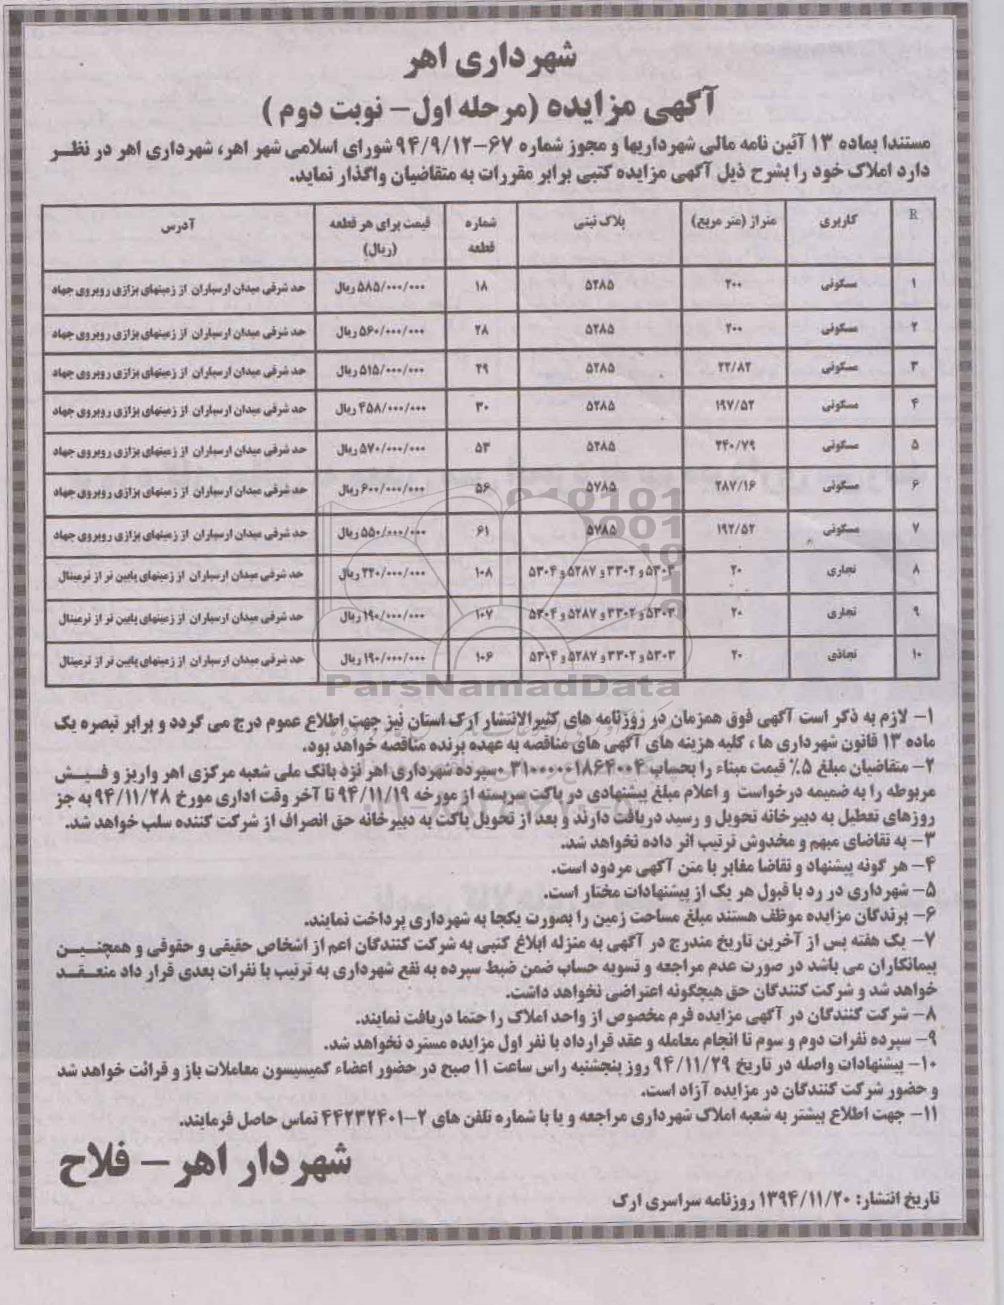 شهرداری اهر
آگهی مزایده (مرحله اول- نوبت دوم )
مستندا بماده ۱۳ آئین نامه مالی شهرداریها و مجوز شماره ۶۷-۹۴/۹/۱۲ شورای اسلامی شهر اهر، شهرداری اهر در نظر
دارد املاک خود را بشرح ذیل آگهی مزایده کتبی برابر مقررات به متقاضیان واگذار نماید.
R کاربری متراژ (متر مربع) پلاک ثبتی شماره قطعه قیمت برای هر قطعه (ریال) آدرس
۱ مسکونی ۲۰۰ ۵۲۸۵ ۱۸ ۵۸۵/۰۰۰/۰۰۰ ریال حد شرقی میدان ارسباران از زمینهای بزازی روبروی جهاد
۲ مسکونی ۲۰۰ ۵۲۸۵ ۲۸ ۵۶۰/۰۰۰/۰۰۰ ریال حد شرقی میدان ارسباران از زمینهای بزازی روبروی جهاد
۳ مسکونی ۲۲/۸۲ ۵۲۸۵ ۲۹ ۵۱۵/۰۰۰/۰۰۰ ریال حد شرقی میدان ارسباران از زمینهای بزازی روبروی جهاد
۴ مسکونی ۱۹۷/۵۲ ۵۲۸۵ ۳۰ ۴۵۸/۰۰۰/۰۰۰ ریال حد شرقی میدان ارسباران از زمینهای بزازی روبروی جهاد
۵ مسکونی ۲۴۰/۷۹ ۵۲۸۵ ۵۳ ۵۷۰/۰۰۰/۰۰۰ ریال حد شرقی میدان ارسباران از زمینهای بزازی روبروی جهاد
۶ مسکونی ۲۸۷/۱۶ ۵۷۸۵ ۵۶ ۶۰۰/۰۰۰/۰۰۰ ریال حد شرقی میدان ارسباران از زمینهای بزازی روبروی جهاد
۷ مسکونی ۱۹۲/۵۲ ۵۷۸۵ ۶۱ ۵۵۰/۰۰۰/۰۰۰ ریال حد شرقی میدان ارسباران از زمینهای بزازی روبروی جهاد
۸ تجاری ۲۰ ۵۳۰۳ و ۳۳۰۲ و ۵۲۸۷ و ۵۳۰۴ ۱۰۸ ۲۲۰/۰۰۰/۰۰۰ ریال حد شرقی میدان ارسباران از زمینهای پایین تر از ترمینال
۹ تجاری ۲۰ ۵۳۰۳ و ۳۳۰۲ و ۵۲۸۷ و ۵۳۰۴ ۱۰۷ ۱۹۰/۰۰۰/۰۰۰ ریال حد شرقی میدان ارسباران از زمینهای پایین تر از ترمینال
۱۰ تجاذی ۲۰ ۵۳۰۳ و ۳۳۰۲ و ۵۲۸۷ و ۵۳۰۴ ۱۰۶ ۱۹۰/۰۰۰/۰۰۰ ریال حد شرقی میدان ارسباران از زمینهای پایین تر از ترمینال
ParsNamadData
۱- لازم به ذکر است آگهی فوق همزمان در روزنامه های کثیرالانتشار ارک استان نیز جهت اطلاع عموم درج می گردد و برابر تبصره یک
ماده ۱۳ قانون شهرداری ها ، کلیه هزینه های آگهی های مناقصه به عهده برنده مناقصه خواهد بود.
۲- متقاضیان مبلغ ۵٪ قیمت مبناء را بحساب ۳۱۰۰۰۰۰۱۸۶۴۰۰۴ سپرده شهرداری اهر نزد بانک ملی شعبه مرکزی اهر واریز و فیش
مربوطه را به ضمیمه درخواست و اعلام مبلغ پیشنهادی در پاکت سربسته از مورخه ۹۴/۱۱/۱۹ تا آخر وقت اداری مورخ ۹۴/۱۱/۲۸ به جز
روزهای تعطیل به دبیرخانه تحویل و رسید دریافت دارند و بعد از تحویل پاکت به دبیرخانه حق انصراف از شرکت کننده سلب خواهد شد.
۳- به تقاضای مبهم و مخدوش ترتیب اثر داده نخواهد شد.
۴- هر گونه پیشنهاد و تقاضا مغایر با متن آگهی مردود است.
۵- شهرداری در رد با قبول هر یک از پیشنهادات مختار است.
۶- برندگان مزایده موظف هستند مبلغ مساحت زمین را بصورت یکجا به شهرداری پرداخت نمایند.
۷- یک هفته پس از آخرین تاریخ مندرج در آگهی به منزله ابلاغ کتبی به شرکت کنندگان اعم از اشخاص حقیقی و حقوقی و همچنین
پیمانکاران می باشد در صورت عدم مراجعه و تسویه حساب ضمن ضبط سپرده به نفع شهرداری به ترتیب با نفرات بعدی قرار داد منعقد
خواهد شد و شرکت کنندگان حق هیچگونه اعتراضی نخواهد داشت.
۸- شرکت کنندگان در آگهی مزایده فرم مخصوص از واحد املاک را حتما دریافت نمایند.
۹- سپرده نفرات دوم و سوم تا انجام معامله و عقد قرارداد با نفر اول مزایده مسترد نخواهد شد.
۱۰- پیشنهادات واصله در تاریخ ۹۴/۱۱/۲۹ روز پنجشنبه راس ساعت ۱۱ صبح در حضور اعضاء کمیسیون معاملات باز و قرائت خواهد شد
و حضور شرکت کنندگان در مزایده آزاد است.
۱۱- جهت اطلاع بیشتر به شعبه املاک شهرداری مراجعه و یا با شماره تلفن های ۲-۴۴۲۳۲۴۰۱ تماس حاصل فرمایند.
شهردار اهر - فلاح
تاریخ انتشار: ۱۳۹۴/۱۱/۲۰ روزنامه سراسری ارک